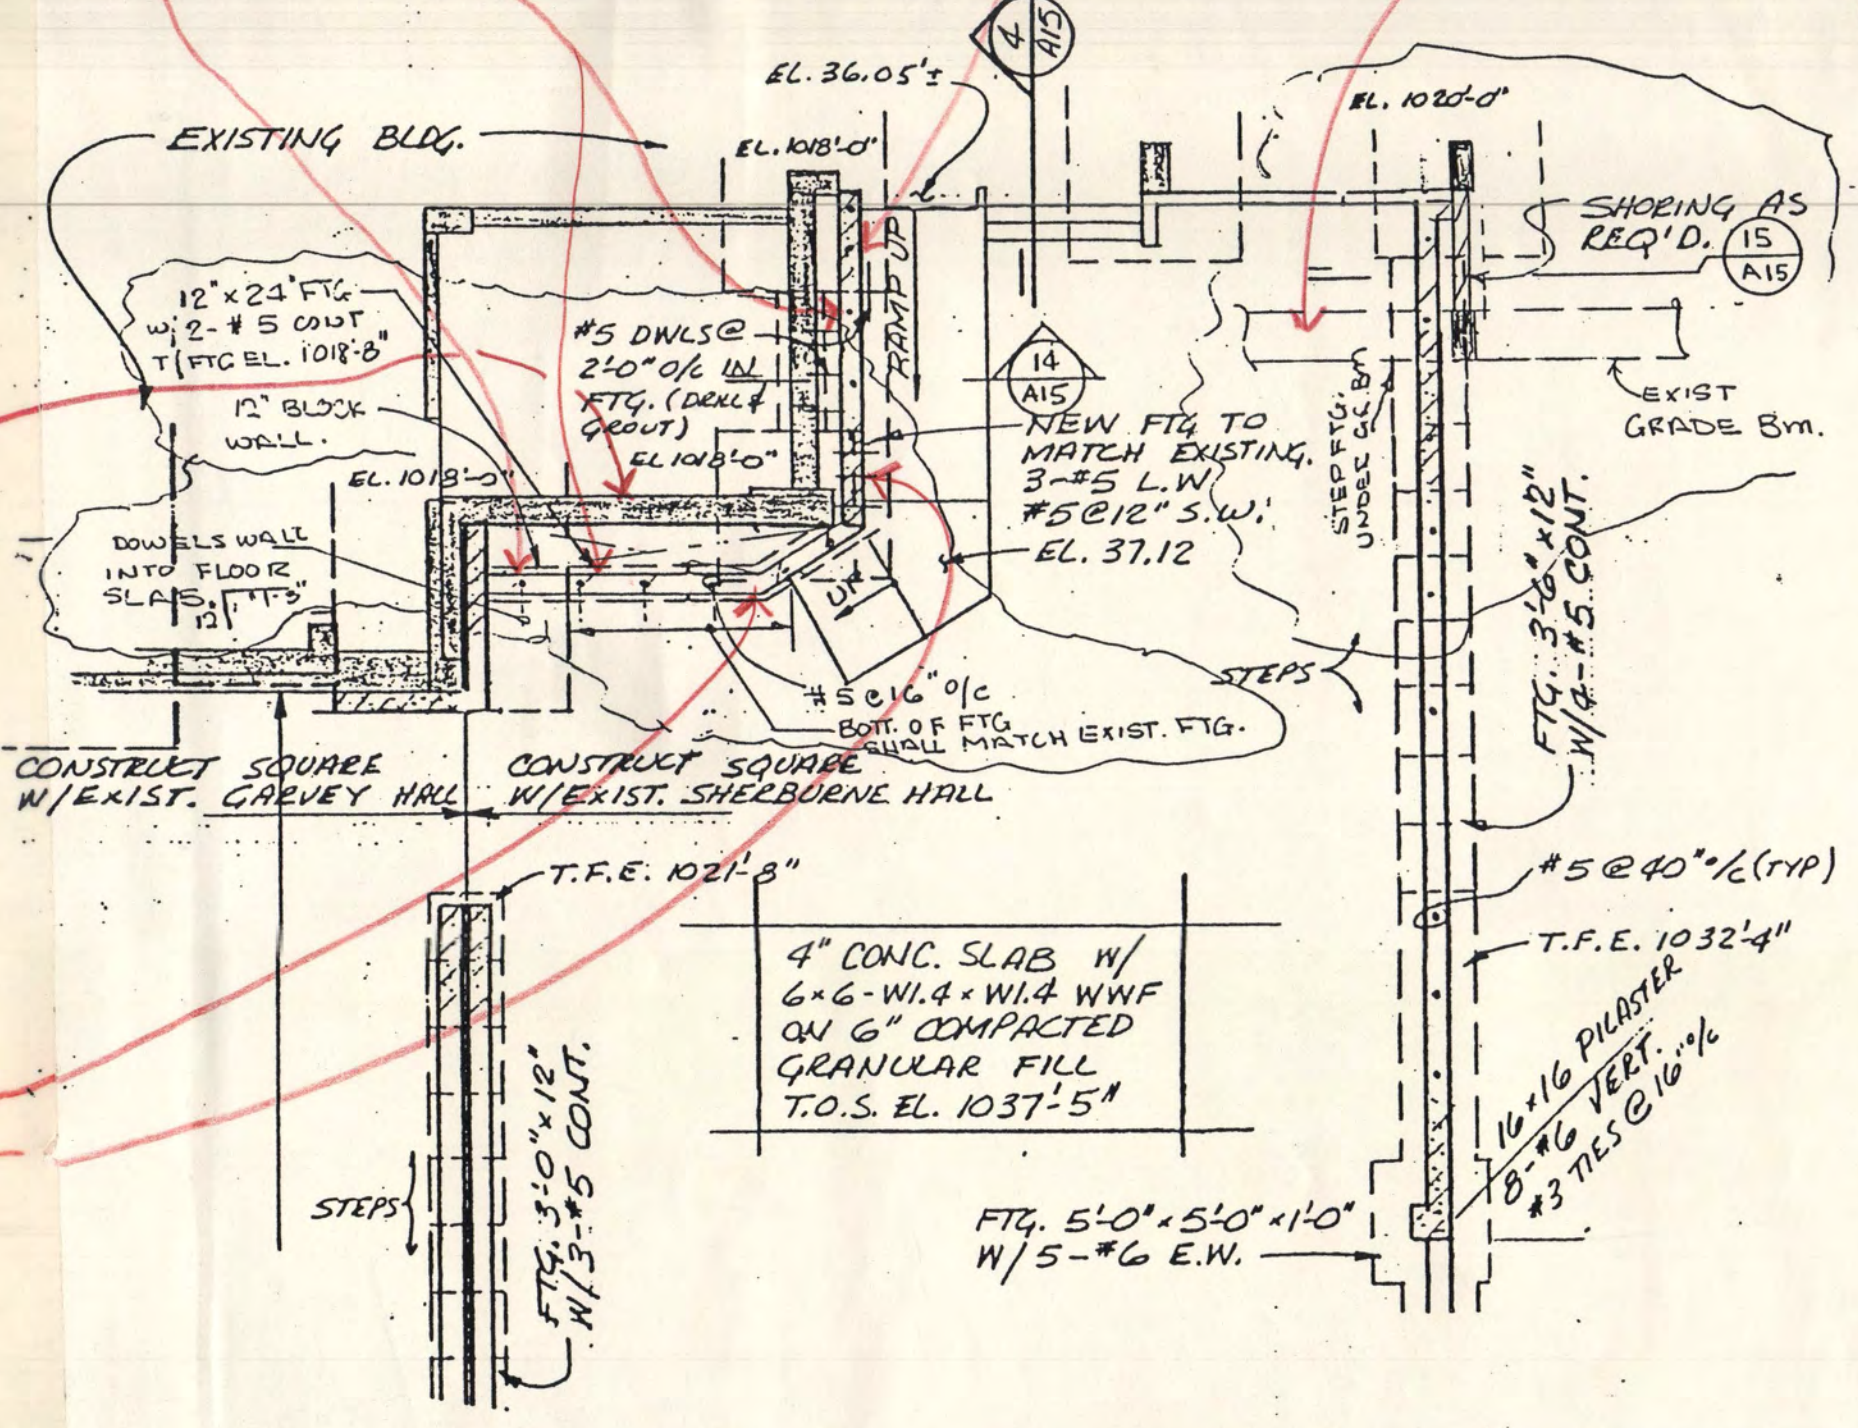 4
A15
EL. 36.05'±
EL. 1020'-0"
EXISTING BLDG.
EL. 1018'-0"
SHORING AS
REQ'D.
15
A15
12" x 24" FTG
W/ 2-#5 CONT
T/FTG EL. 1018'-8"
#5 DWLS @
2'-0" O/C IN
FTG. (DRILL &
GROUT)
RAMP UP
14
A15
12" BLOCK
WALL.
EL. 1018'-0"
EL 1018'-0"
NEW FTG TO
MATCH EXISTING.
3-#5 L.W.
#5 @ 12" S.W.
EL. 37.12
STEP FTG.
UNDER GR. Bm
EXIST
GRADE Bm.
DOWELS WALL
INTO FLOOR
SLAB.
12
UP
FTG. 3'-6" x 12"
W/4-#5 CONT.
STEPS
#5 @ 16" O/C
BOTT. OF FTG
SHALL MATCH EXIST. FTG.
CONSTRUCT SQUARE
W/EXIST. GARVEY HALL
CONSTRUCT SQUARE
W/EXIST. SHERBURNE HALL
T.F.E. 1021'-8"
#5 @ 40" o/c (TYP)
T.F.E. 1032'-4"
4" CONC. SLAB W/
6x6-W1.4 x W1.4 WWF
ON 6" COMPACTED
GRANULAR FILL
T.O.S. EL. 1037'-5"
16x16 PILASTER
8-#6 VERT.
#3 TIES @ 16" o/c
STEPS
FTG. 3'-0" x 12"
W/3-#5 CONT.
FTG. 5'-0" x 5'-0" x 1'-0"
W/5-#6 E.W.